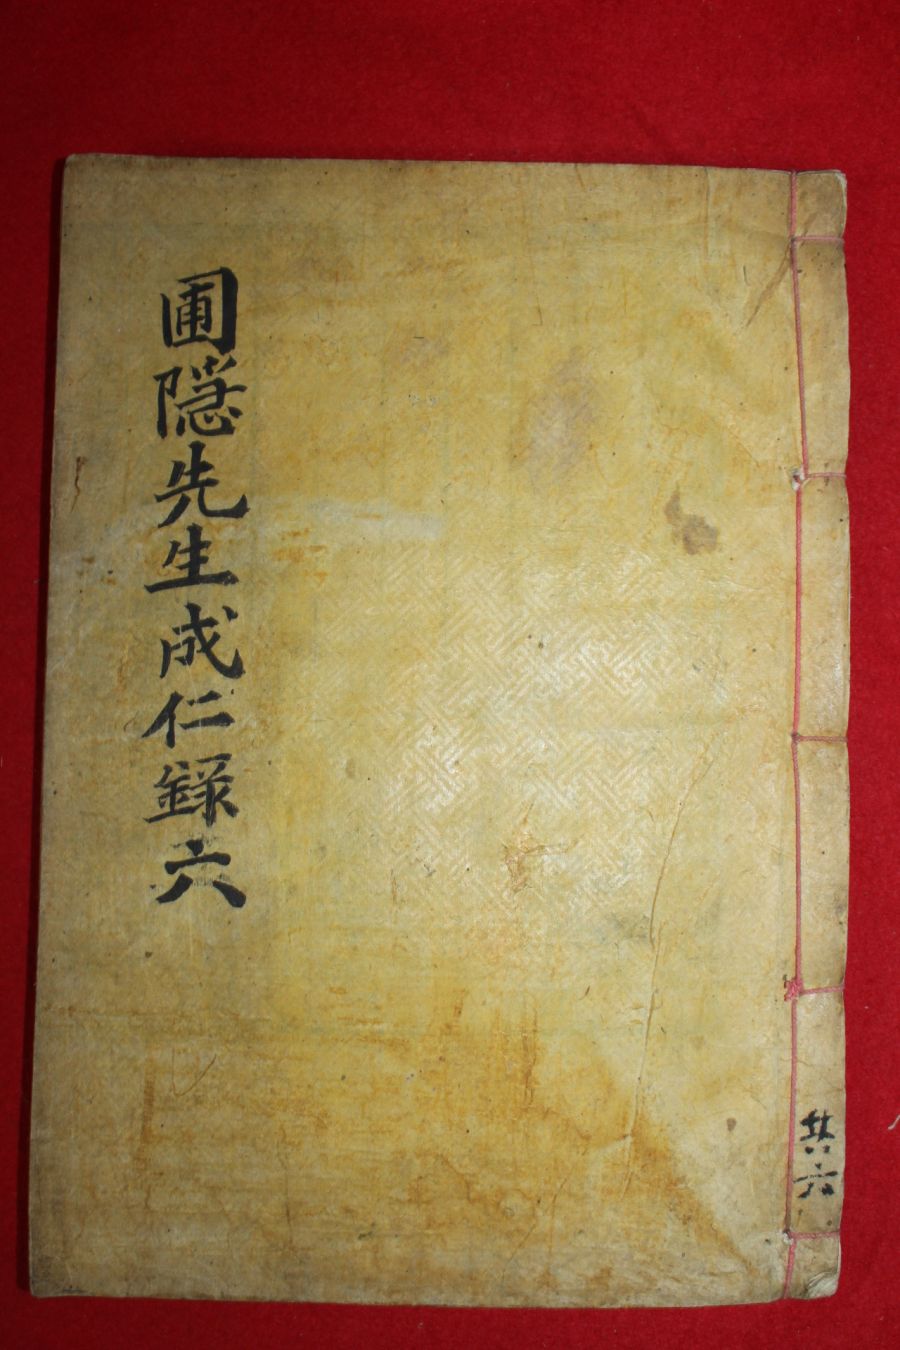 圃隠先生成仁録六
共六